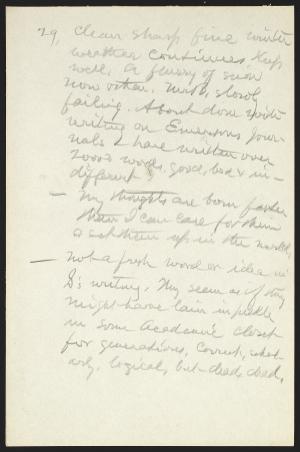 29, Clear sharp fine winter
weather continues, Keep
well. A flurry of snow
now & then. Mrs B. slowly
failing. About done with
writing on Emersons Jour-
nals I have written over
7000 words, good, bad & in-
different
— My thoughts are born faster
than I can care for them
& set them up in the world,
— not a fresh word or idea in
S's writing. They seem as if they
might have lain in pickle
in some Academic closet
for generations, Correct, schol-
arly, logical, but dead, dead,